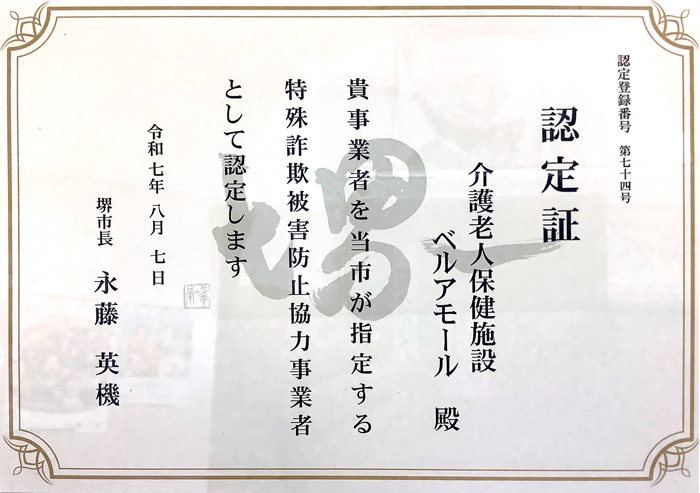 認定登録番号　第七十四号
認定証
介護老人保健施設
ベルアモール　殿
貴事業者を当市が指定する
特殊詐欺被害防止協力事業者
として認定します
令和七年 八月 七日
堺市長　永藤　英機
堺